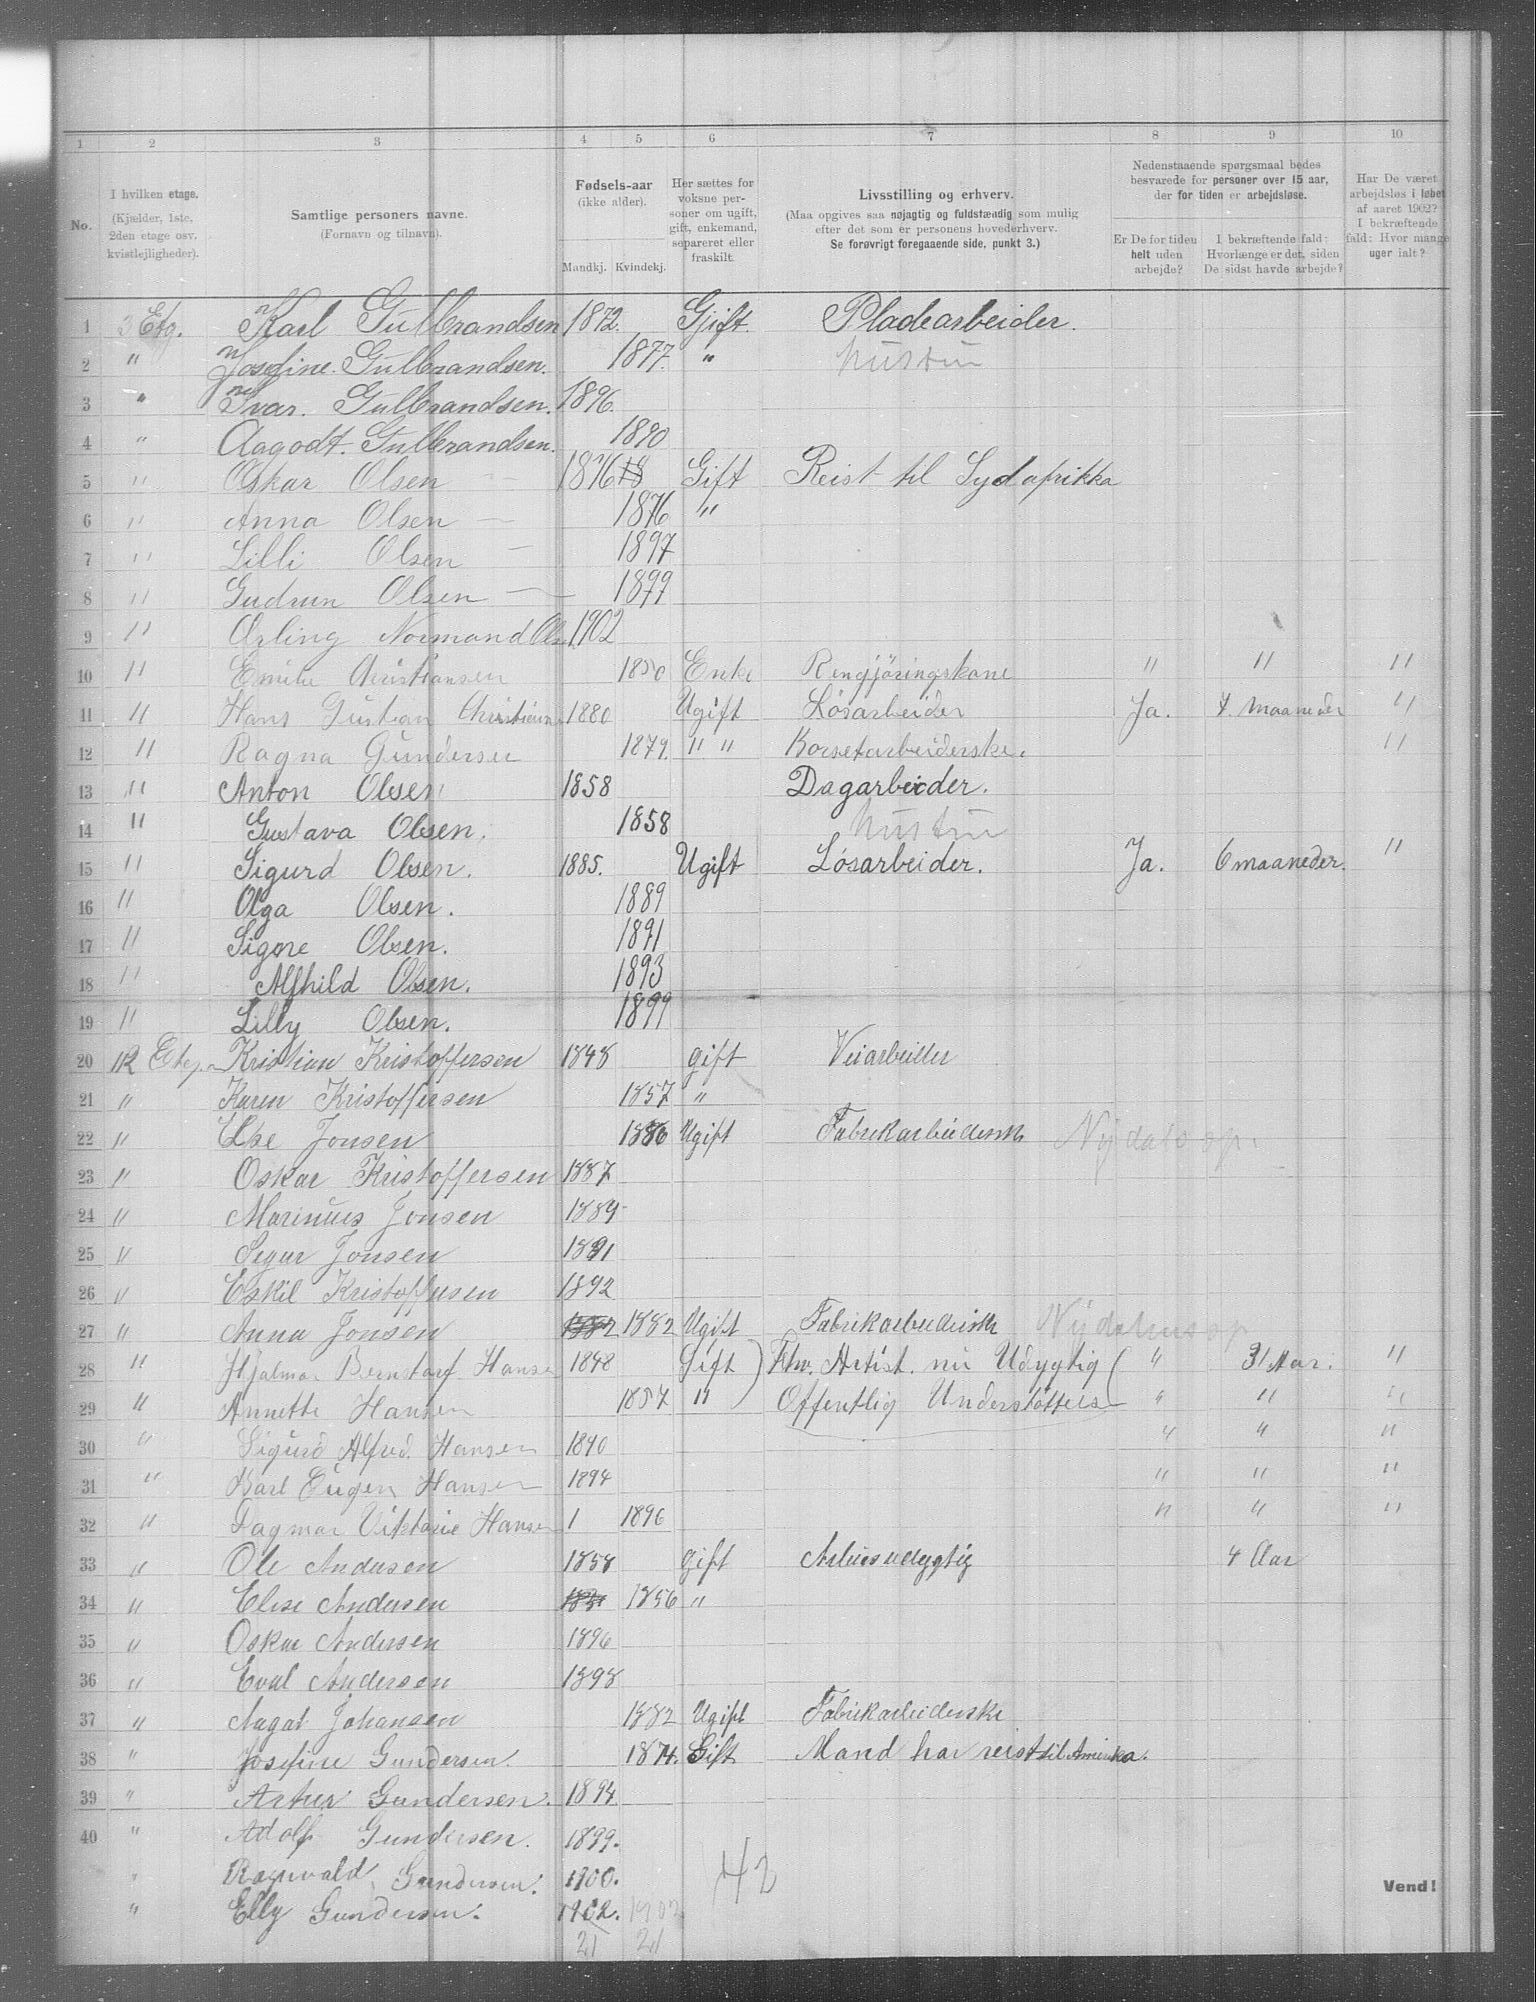 1 2 3 4 5 6 7 8 9 10
No.
I hvilken etage. (Kjælder, 1ste, 2den etage osv. kvistlejligheder).
Samtlige personers navne. (Fornavn og tilnavn).
Fødsels-aar (ikke alder). Mandkj. Kvindekj.
Her sættes for voksne personer om ugift, gift, enkemand, separeret eller fraskilt.
Livsstilling og erhverv. (Maa opgives saa nøjagtig og fuldstændig som mulig efter det som er personens hovederhverv. Se forøvrigt foregaaende side, punkt 3.)
Nedenstaaende spørgsmaal bedes besvarede for personer over 15 aar, der for tiden er arbejdsløse.
Er De for tiden helt uden arbejde?
I bekræftende fald: Hvorlænge er det, siden De sidst havde arbejde?
Har De været arbejdsløs i løbet af aaret 1902? I bekræftende fald: Hvor mange uger ialt?
1 3 Etg. Karl Gulbrandsen 1872. Gjift. Pladearbeider.
2 " Josefine Gulbrandsen. 1877. " hustru
3 " Ivar. Gulbrandsen. 1896.
4 " Aagodt. Gulbrandsen. 1890
5 " Oskar Olsen 1876 Gift Reist til Sydafrikka
6 " Anna Olsen 1876 "
7 " Lilli Olsen 1897
8 " Gudrun Olsen 1899
9 " Erling Normand Olsen 1902
10 " Emilie Christiansen 1850 Enke Rengjøringskone " " "
11 " Hans Gustian 1880 Ugift Løsarbeider Ja. 7. Maaneder "
12 " Ragna Gundersen 1879. " " Korsetarbeiderske. "
13 " Anton Olsen 1858 Dagarbeider.
14 " Gustava Olsen. 1858 hustru
15 " Sigurd Olsen. 1885. Ugift Løsarbeider. Ja. 6 maaneder. "
16 " Olga Olsen. 1889
17 " Signe Olsen. 1891
18 " Alfhild Olsen. 1893
19 " Lilly Olsen. 1899
20 Etg. Kristian Kristoffersen 1848 gift Veiarbeider
21 " Karen Kristoffersen 1857 "
22 " Else Jonsen 1886 Ugift Fabrikarbeiderske
23 " Oskar Kristoffersen 1887
24 " Marinius Jonsen 1889
25 " Sigur Jonsen 1891
26 " Eskil Kristoffersen 1892
27 " Anna Jonsen 1882 1882 Ugift Fabrikarbeiderske
28 " Hjalmar Berntorf Hansen 1848 Gift Fhv. Artist. nu Udygtig " 3 Aar. "
29 " Annette Hansen 1857 " Offentlig Understøttelse " " "
30 " Sigurd Alfred. Hansen 1890 " " "
31 " Karl Eugen Hansen 1894 " " "
32 " Dagmar Viktorie Hansen 1 1896 " " "
33 " Ole Andersen 1858 gift 4 Aar
34 " Elise Andersen 1856 "
35 " Oskar Andersen 1896
36 " Eval Andersen 1898
37 " Aagot Johansen 1882 Ugift Fabrikarbeiderske
38 " Josefine Gundersen. 1874. Gift Mand har reist til Amerika.
39 " Artur Gundersen. 1894
40 " Adolf Gundersen. 1899.
" Ragnvald Gundersen. 1900.
" Elly Gundersen. 1902. 1902
42
Vend!
21 21